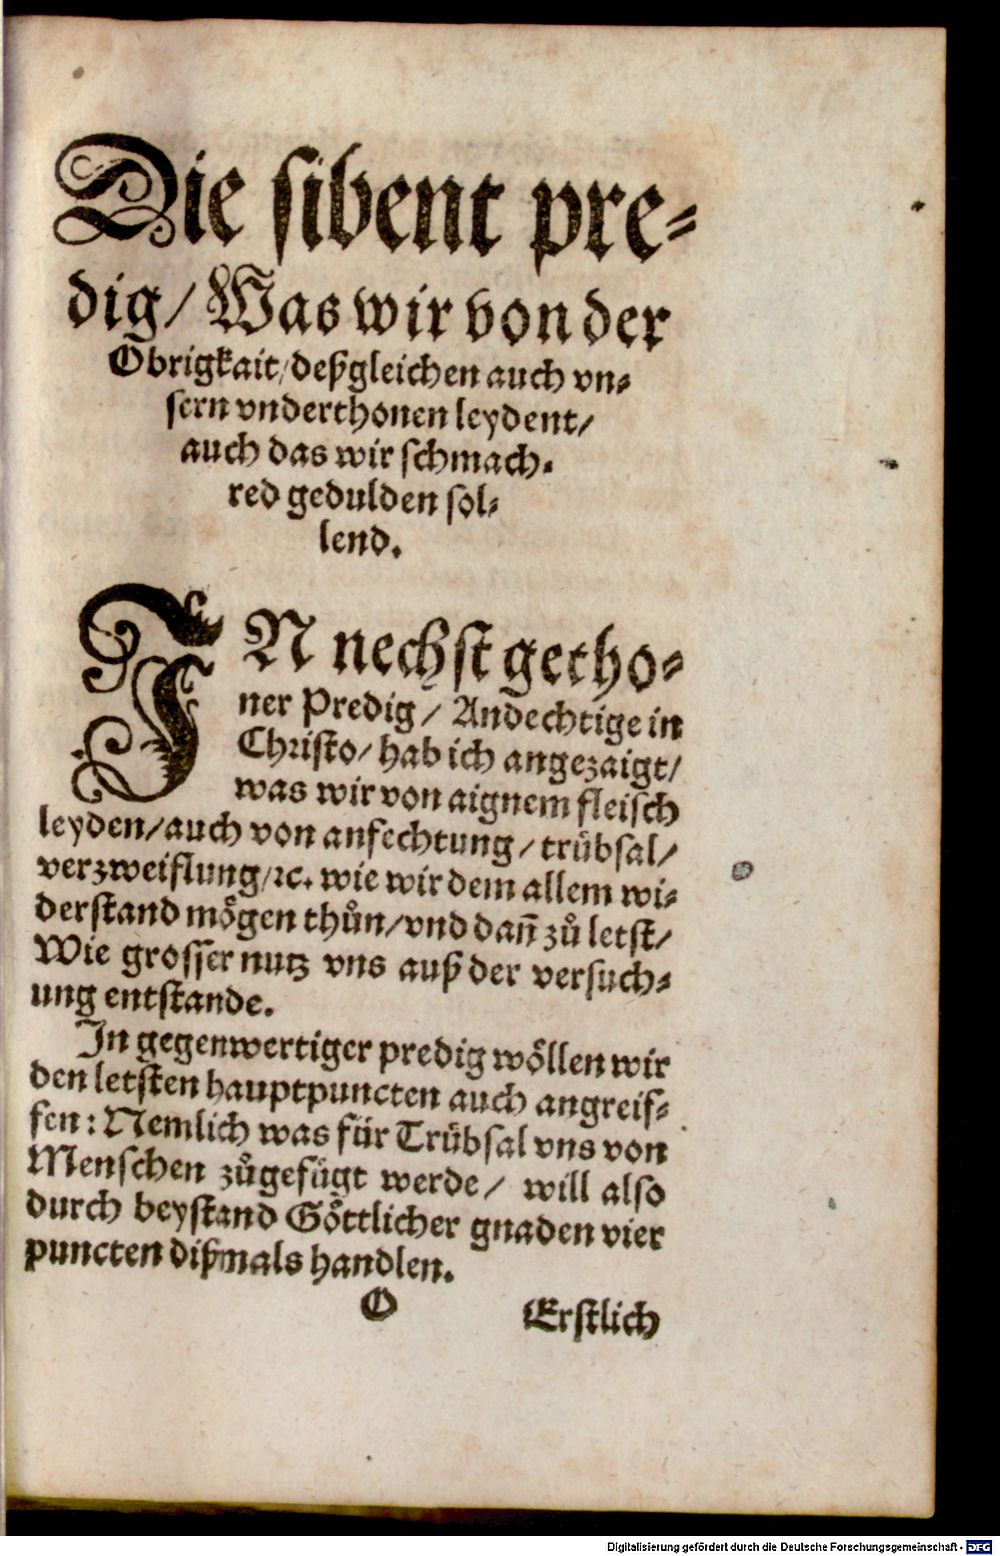 Die sibent pre⸗
dig/ Was wir von der
Obrigkait/deßgleichen auch vn⸗
sern vnderthonen leydent/
auch das wir schmach⸗
red gedulden sol⸗
lend.
IN nechst getho⸗
ner Predig/ Andechtige in
Christo/ hab ich angezaigt/
was wir von aignem fleisch
leyden/auch von anfechtung/ trübsal/
verzweiflung/ꝛc. wie wir dem allem wi⸗
derstand mögen thůn/vnd dañ zů letst/
Wie grosser nutz vns auß der versuch⸗
ung entstande.
In gegenwertiger predig wöllen wir
den letsten hauptpuncten auch angreif⸗
fen: Nemlich was für Trübsal vns von
Menschen zůgefügt werde/ will also
durch beystand Göttlicher gnaden vier
puncten dißmals handlen.
O Erstlich
Digitalisierung gefördert durch die Deutsche Forschungsgemeinschaft - DFG